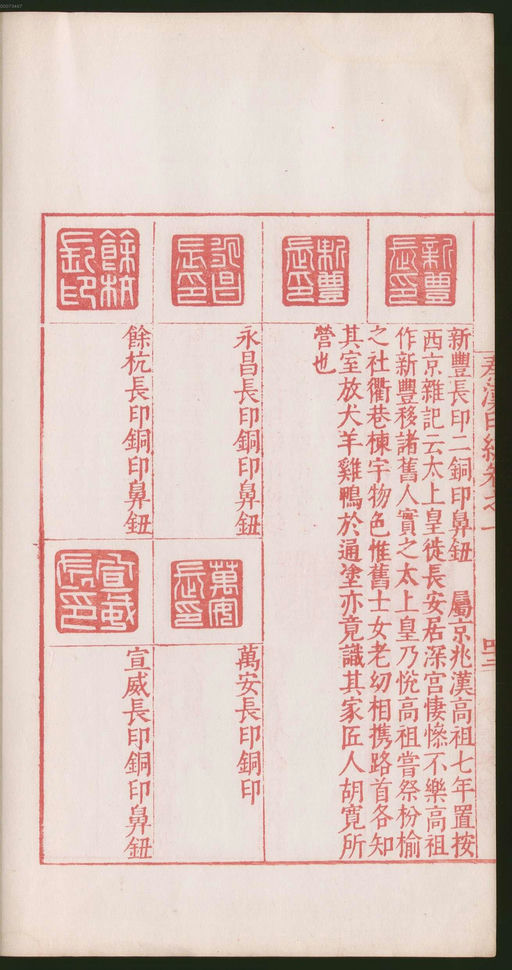 秦漢印統卷之一
四二
新豐長印
新豐長印
新豐長印二銅印鼻鈕　屬京兆漢高祖七年置按
西京雜記云太上皇徙長安居深宮悽慘不樂高祖
作新豐移諸舊人實之太上皇乃悅高祖嘗祭枌榆
之社衢巷棟宇物色惟舊士女老幼相攜路首各知
其室放犬羊雞鴨於通塗亦竟識其家匠人胡寬所
營也
永昌長印
永昌長印銅印鼻鈕
萬安長印
萬安長印銅印
餘杭長印
餘杭長印銅印鼻鈕
宣威長印
宣威長印銅印鼻鈕
00073447